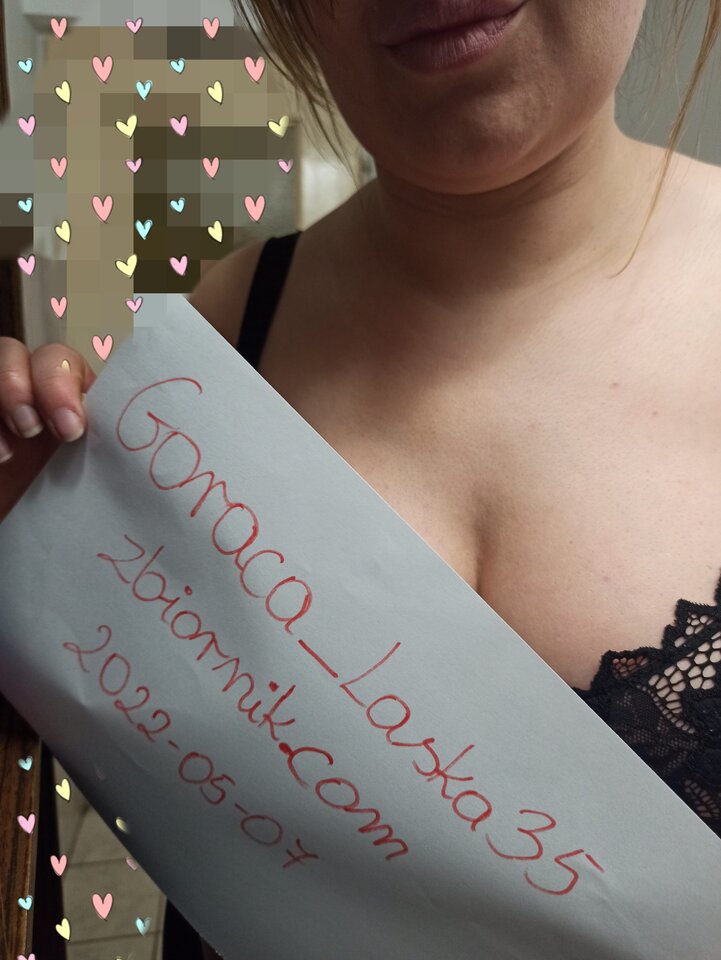 Goraca_Laska35
zbiornik.com
2022-05-07